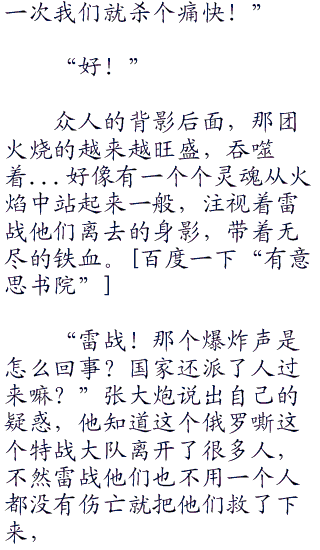 一次我们就杀个痛快！”
“好！”
众人的背影后面，那团
火烧的越来越旺盛，吞噬
着...好像有一个个灵魂从火
焰中站起来一般，注视着雷
战他们离去的身影，带着无
尽的铁血。[百度一下“有意
思书院”]
“雷战！那个爆炸声是
怎么回事？国家还派了人过
来嘛？”张大炮说出自己的
疑惑，他知道这个俄罗嘶这
个特战大队离开了很多人，
不然雷战他们也不用一个人
都没有伤亡就把他们救了下
来，